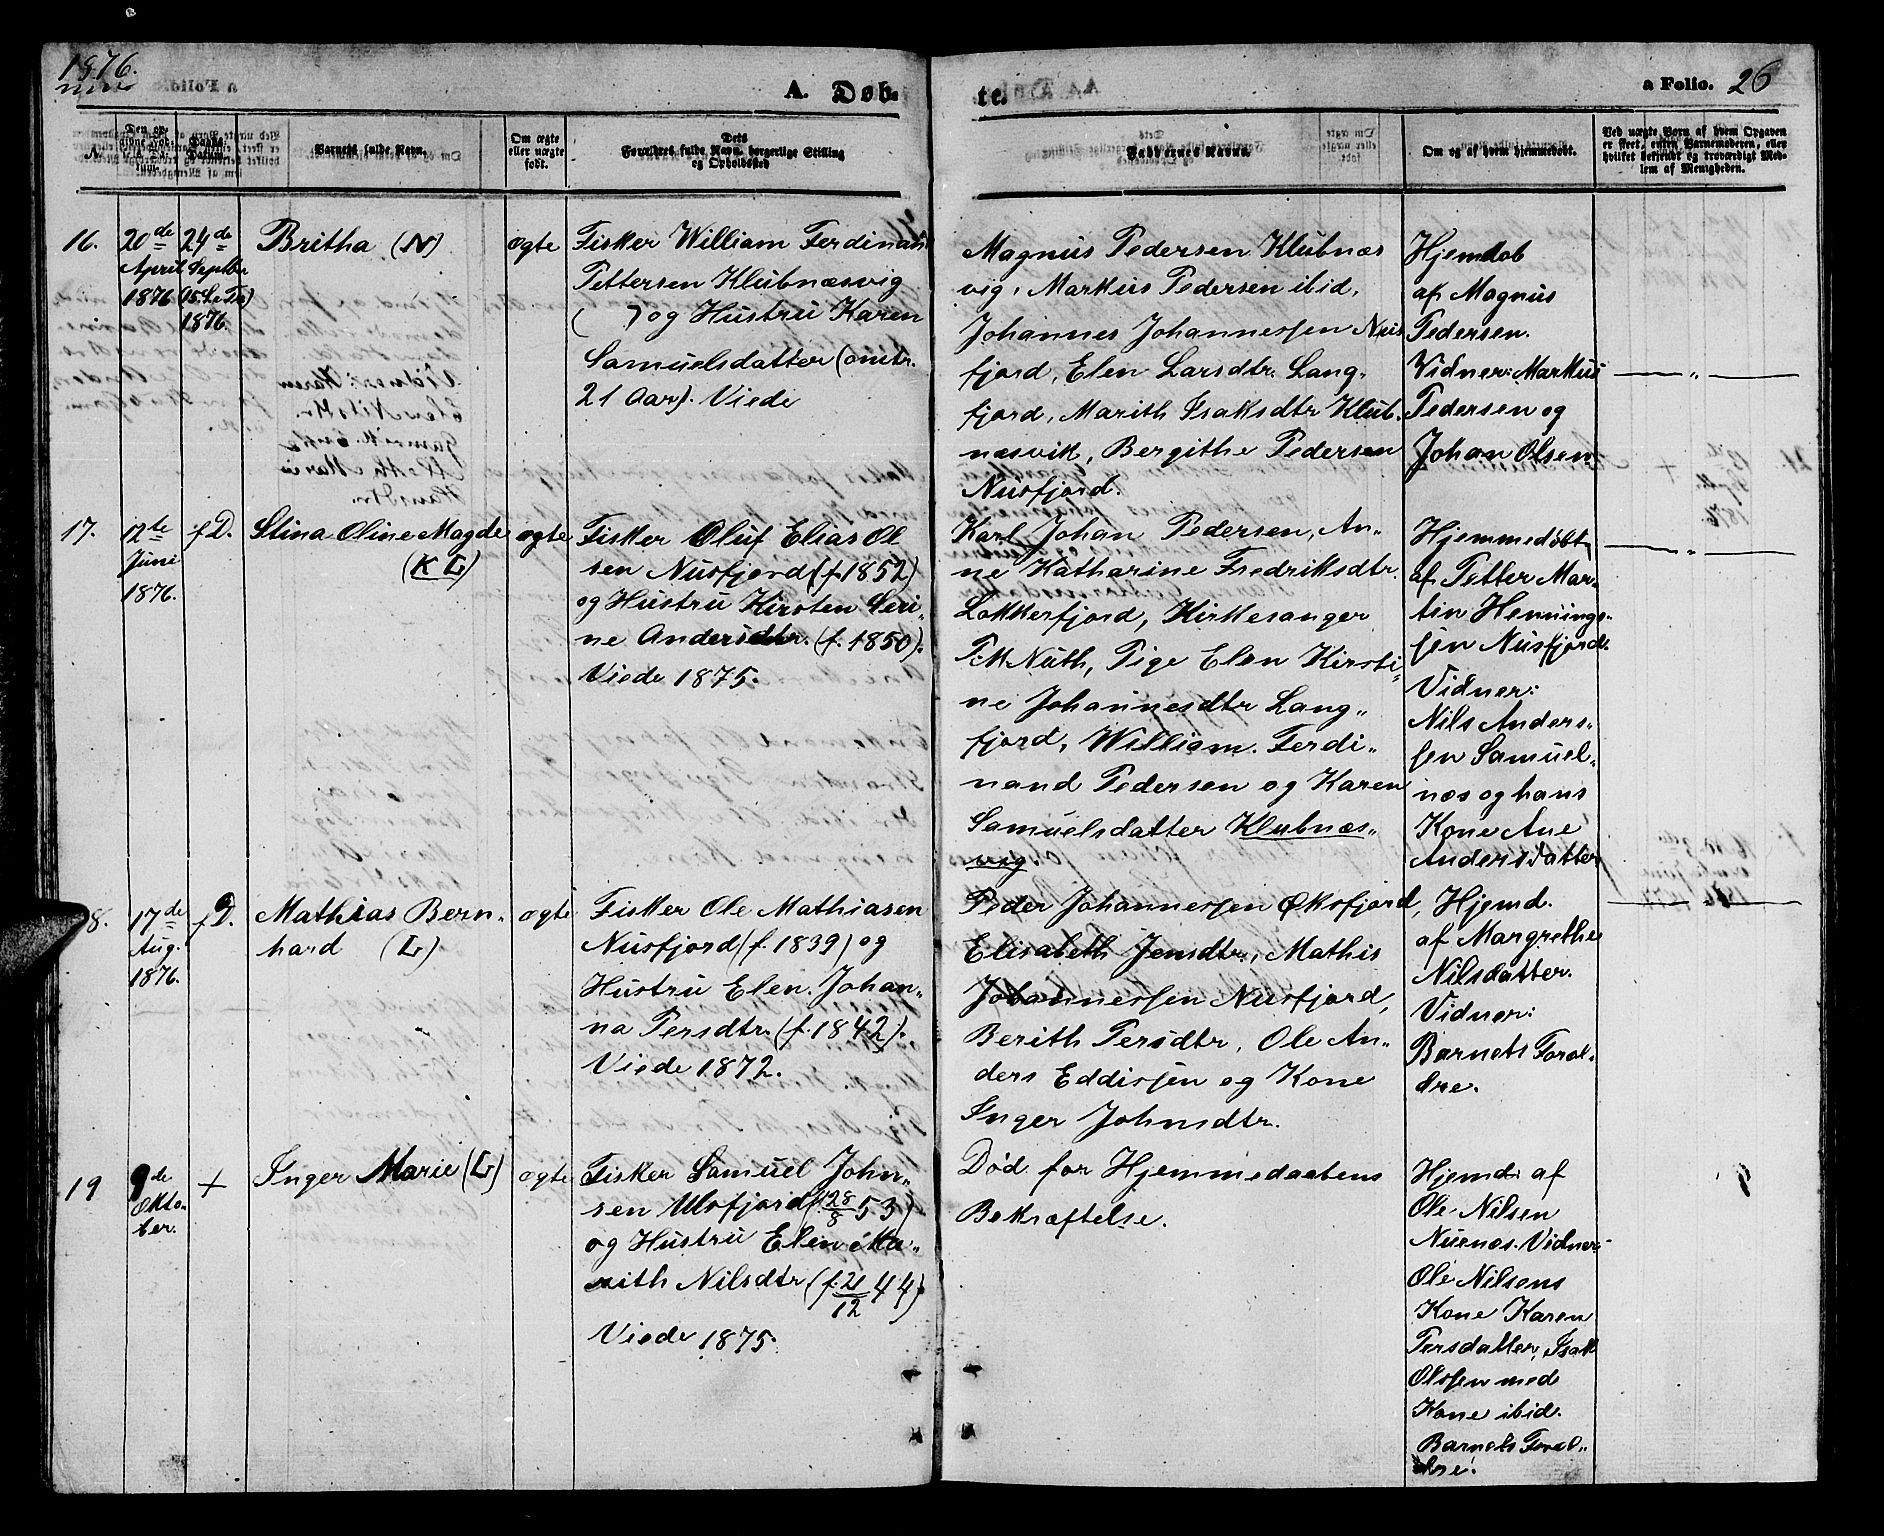 1876.
A. Døb-
te.
a Folio. 26
N.
Daabs-
Datum.
Barnets fulde Navn.
Om ægte
eller uægte
født.
Dets
Forældres fulde Navn, borgerlige Stilling
og Opholdssted
Faddernes Navne.
Om og af hvem hjemmedøbt.
Ved uægte Børn af hvem Opgaven
er skeet, enten Barnemoderen, eller
hvilket bekjendt og troværdigt Med-
lem af Menigheden.
16.
20de
April
1876
24de
Septbr
1876.
Britha (N)
ægte
Fisker William Ferdinand
Pettersen Klubnæsvig
( ) og Hustru Karen
Samuelsdatter (omtr.
21 Aar). Viede
Magnus Pedersen Klubnæs
vig, Markus Pedersen ibid,
Johannes Johannessen Nus
fjord, Elen Larsdtr. Lang-
fjord, Marith Isaksdtr Klub-
næsvik, Bergithe Pedersen
Nusfjord.
Hjemdøb
af Magnus
Pedersen.
Vidner: Markus
Pedersen og
Johan Olsen
17.
12te
Juni
1876.
f D.
Stina Oline Magde
(K L)
ægte
Fisker Oluf Elias Ol
sen Nusfjord (f. 1852)
og Hustru Kirsten Seri-
ne Andersdtr. (f. 1850).
Viede 1875.
Karl Johan Pedersen, An-
ne Katharine Fredriksdtr.
Lokkerfjord, Kirkesanger
Nuth, Pige Elen Kirsti-
ne Johannesdtr Lang-
fjord, William Ferdi-
nand Pedersen og Karen
Samuelsdatter Klubnæs-
vig
Hjemmedøbt
af Petter Mar-
tin Hennings-
sen Nusfjord.
Vidner:
Nils Anders-
sen Samuel-
næs og hans
Kone Ane
Andersdatter
18.
17de
Aug.
1876.
f D.
Mathias Bern-
hard (L)
ægte
Fisker Ole Mathiasen
Nusfjord (f. 1839) og
Hustru Elen Johan-
na Persdtr. (f. 1842).
Viede 1872.
Peder Johannessen Øksfjord,
Elisabeth Jensdtr, Mathis
Johannessen Nusfjord,
Berith Persdtr, Ole An-
ders Eddissen og Kone
Inger Johnsdtr.
Hjemd.
af Margrethe
Nilsdatter.
Vidner:
Barnets Foræl-
dre.
19
9de
Okto-
ber.
+
Inger Marie (L)
ægte
Fisker Samuel John-
sen Ulsfjord (f 28/8 53)
og Hustru Elen Ma-
rith Nilsdtr (f. 21/12 44)
Viede 1875.
Død før Hjemmedaabens
Bekræftelse.
Hjemd: af
Ole Nilsen
Nusnes. Vidner:
Ole Nilsens
Kone Karen
Persdatter, Isak
Olsen med
Kone ibid.
Barnets Foræl-
dre.